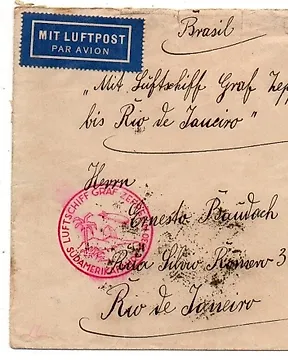 MIT LUFTPOST
PAR AVION
Brasil
"Mit Luftschiff Graf Zepp
bis Rio de Janeiro"
Herrn
Ernesto Baudach
LUFTSCHIFF GRAF ZEPPELIN
SÜDAMERIKA
Rua Silvio Romero 3
Rio de Janeiro